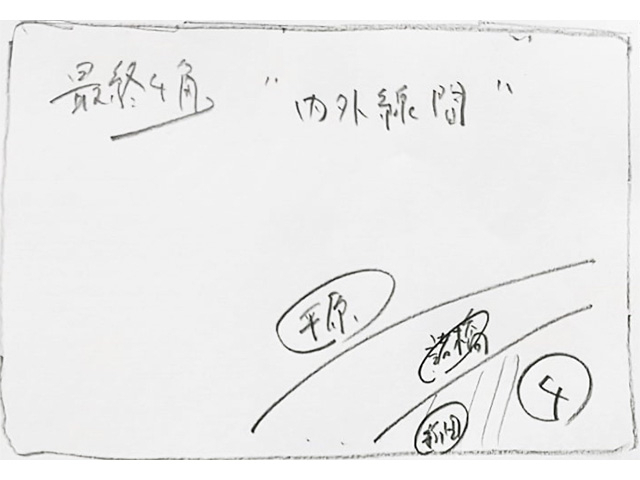 最終4角 "内外線間"
平原
諸橋
4